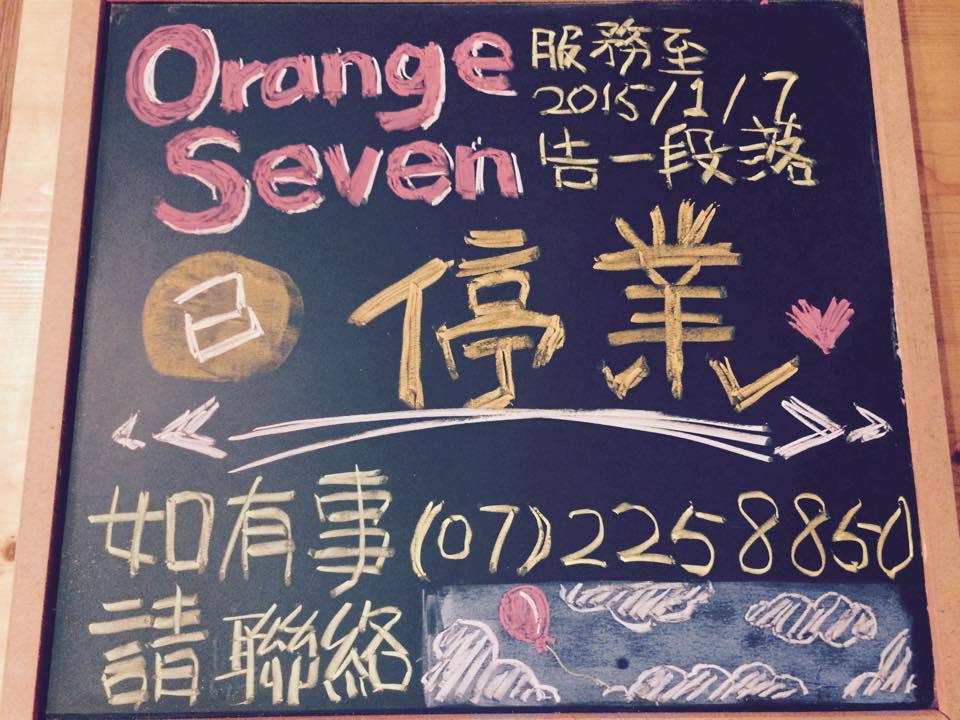 Orange
Seven
服務至
2015/1/7
告一段落
已停業
如有事(07)2258850
請聯絡